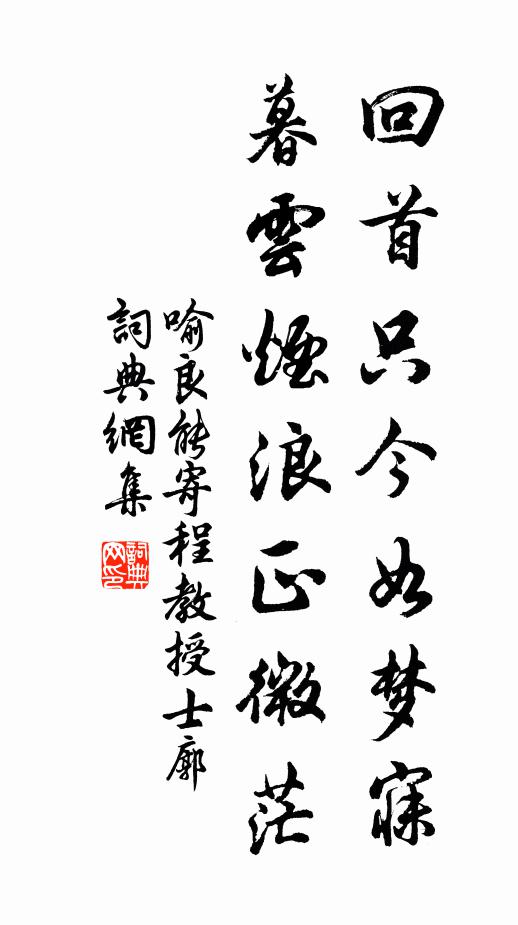 回首只今如梦寐
暮雲煙浪正微茫
喻良能寄程教授士廓
詞典網集
詞典网印